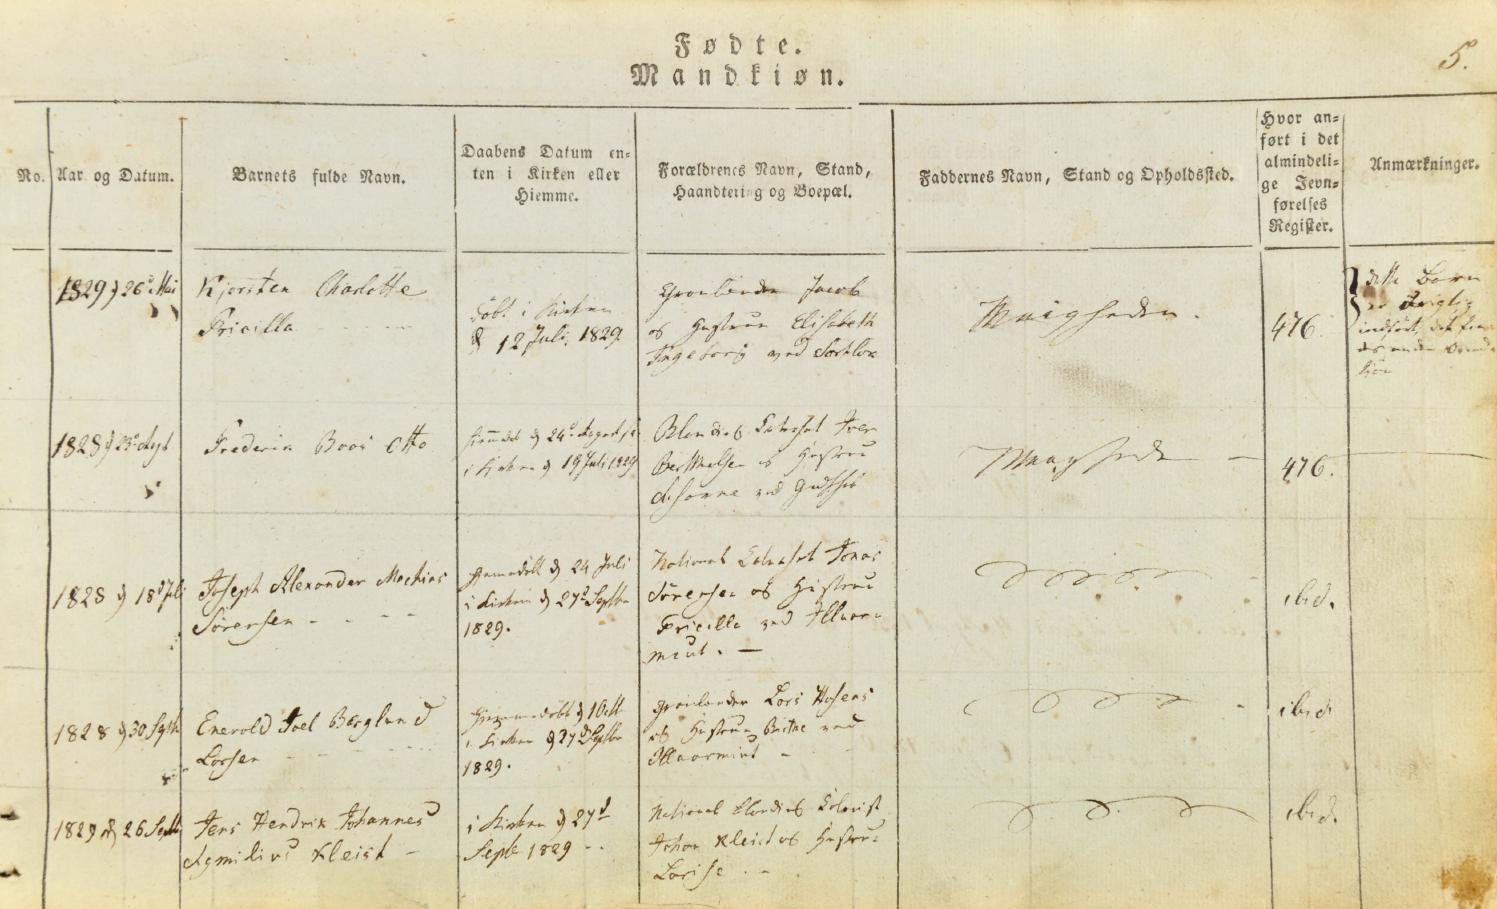 Fødte.
Mandkiøn.
5.
No.
Aar og Datum.
Barnets fulde Navn.
Daabens Datum en-
ten i Kirken eller
Hiemme.
Forældrenes Navn, Stand,
Haandtering og Boepæl.
Faddernes Navn, Stand og Opholdssted.
Hvor an-
ført i det
almindeli-
ge Jevn-
førelses
Register.
Anmærkninger.
1829 d 26 Mai
Kjersten Charlotte
Pricilla
Døbt i Kirken
d 12 Juli 1829
Grønlænder Jacob
og Hustrue Elisabeth
Ingeborg ved
476
dette Barn
er
indført, det
1828 d 23 Augt
Frederik Boas Otto
d 24 August
i Kirken d 19 Juli 1829
Blandings Catechet Iver
Berthelsen og Hustrue
ved
476.
1828 d 18 Juli
Joseph Alexander Mathias
Sørensen
Hjemmedøbt d 24 Juli
i Kirken d 27 Septbr
1829.
National Catechet Jonas
Sørensen og Hustrue
Pricilla ved
ibid.
1828 d 30 Septb
Enevold Joel Berglund
Larsen
Hjemmedøbt d
i Kirken d 27 Septbr
1829.
Grønlænder Lars
og Hustrue Birthe ved
ibid
1829 d 26 Septb
Jens Hendrik Johannes
Egmidius Kleist
i Kirken d 27
Septb 1829
National Blandings
Johan Kleist og Hustrue
Lovise
ibid.